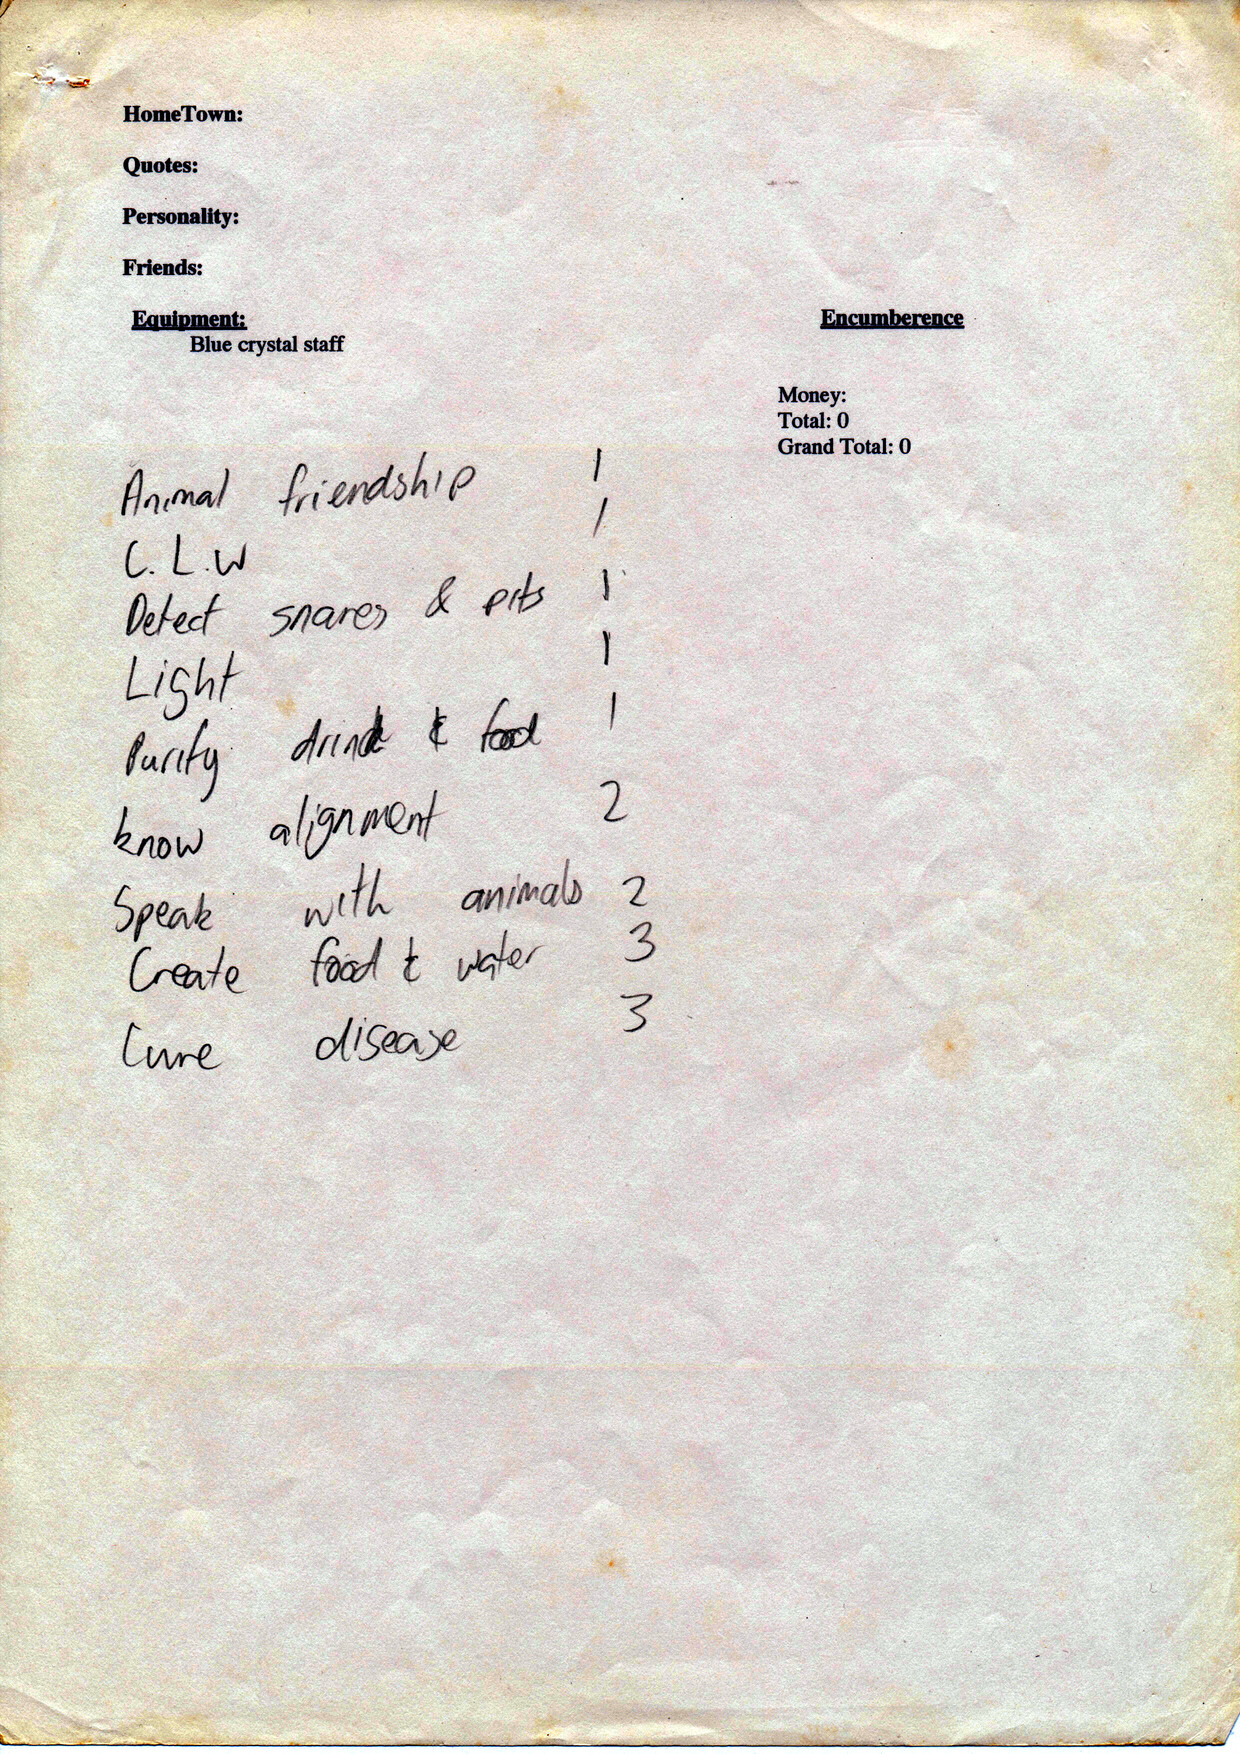 HomeTown:
Quotes:
Personality:
Friends:
Equipment:
Blue crystal staff
Encumberence
Money:
Total: 0
Grand Total: 0
Animal friendship 1
C.L.W 1
Detect snares & pits 1
Light 1
Purify drink & food 1
know alignment 2
Speak with animals 2
Create food & water 3
Cure disease 3